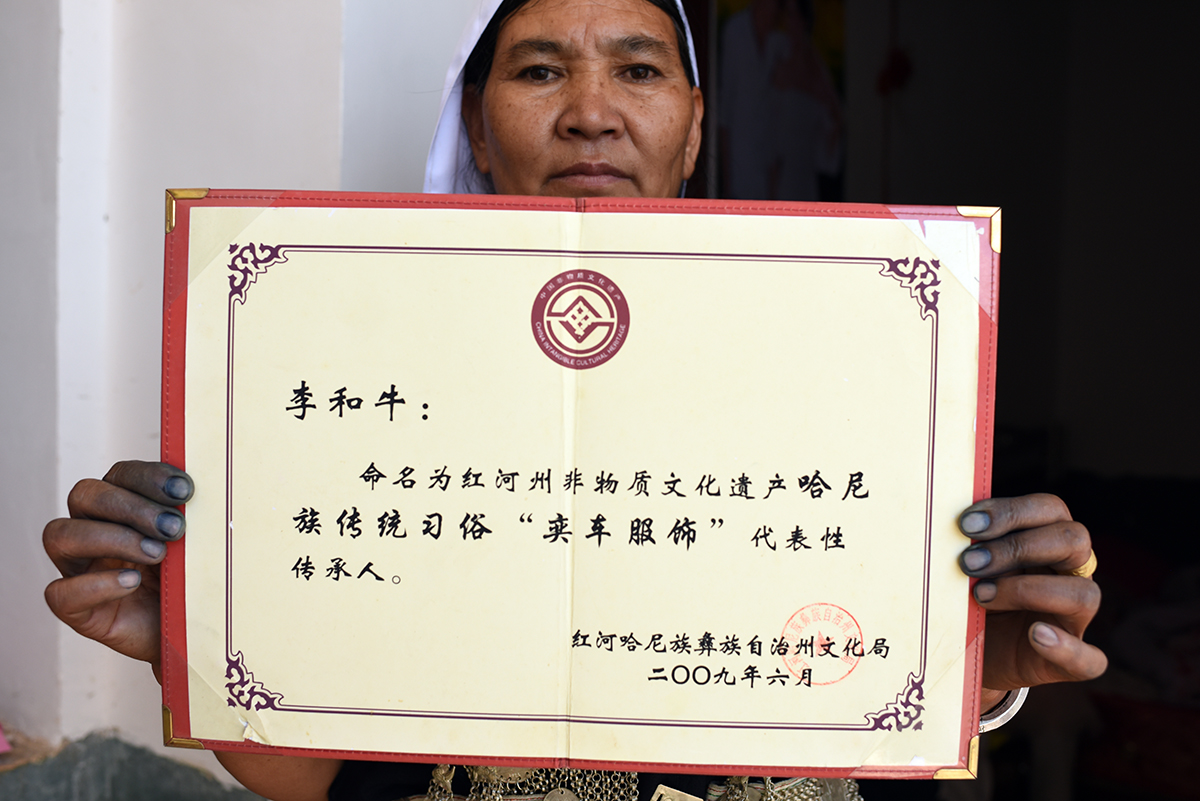 中国非物质文化遗产
CHINA INTANGIBLE CULTURAL HERITAGE
李和牛：
命名为红河州非物质文化遗产哈尼
族传统习俗“奕车服饰”代表性
传承人。
红河哈尼族彝族自治州文化局
二〇〇九年六月